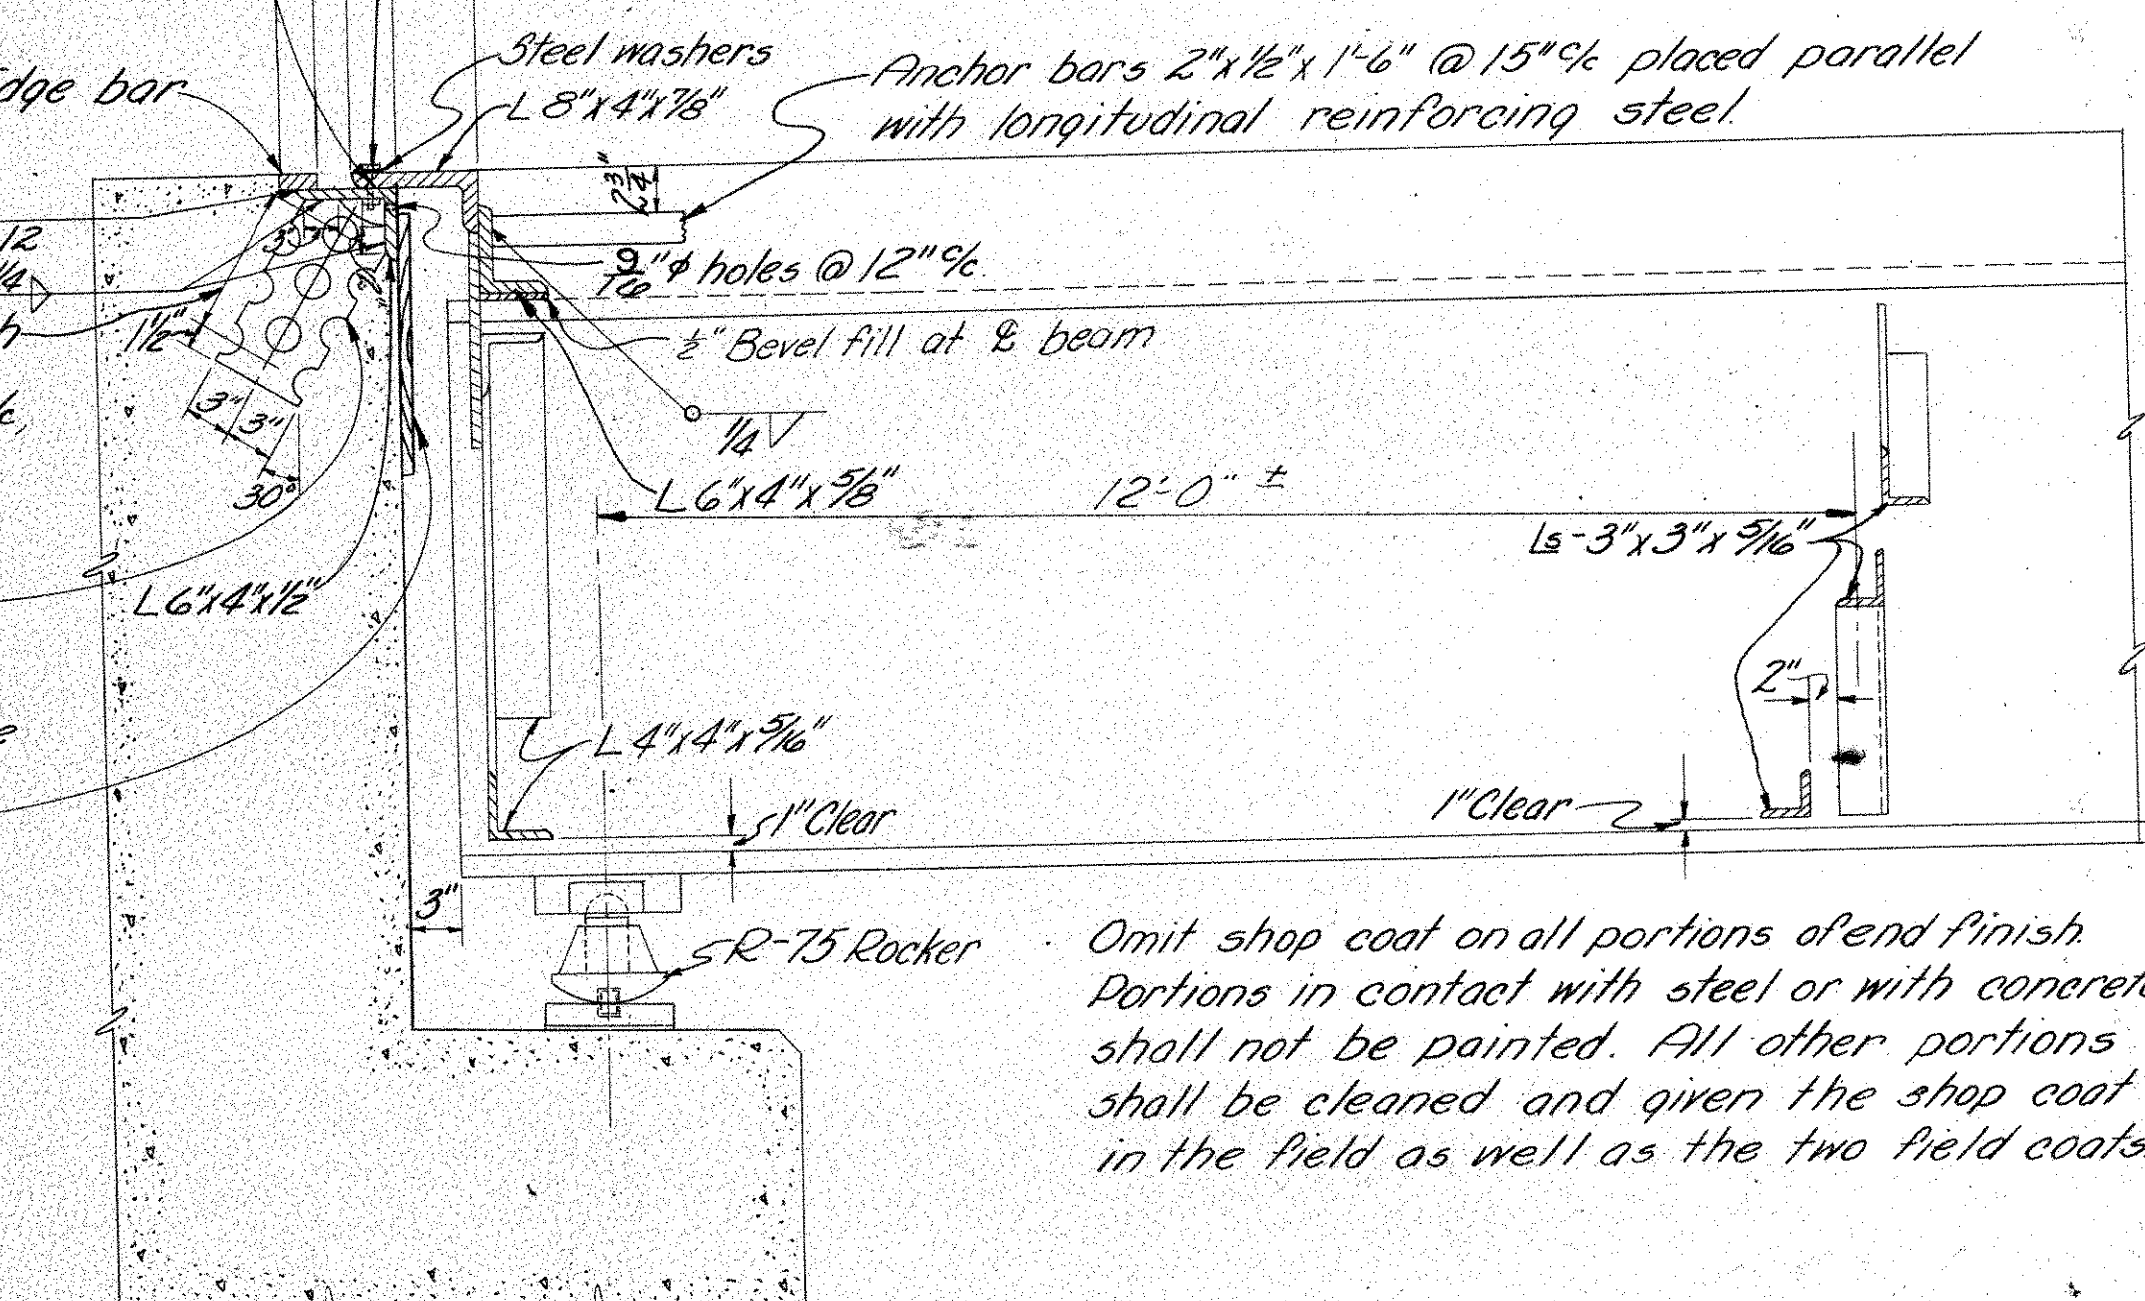 Steel washers
Anchor bars 2"x½"x 1'-6" @ 15" c/c placed parallel
with longitudinal reinforcing steel.
bar
L 8"x4"x⅞"
2¾"
12
¼
3"
2"
9/16"φ holes @ 12" c/c.
1½"
½" Bevel fill at ℄ beam
3"
3"
30°
¼
L 6"x4"x⅝"
12'-0" ±
Ls-3"x3"x5/16"
L 6"x4"x½"
2"
L 4"x4"x5/16"
1" Clear
1" Clear
3"
R-75 Rocker
Omit shop coat on all portions of end finish.
Portions in contact with steel or with concrete
shall not be painted. All other portions
shall be cleaned and given the shop coat
in the field as well as the two field coats.